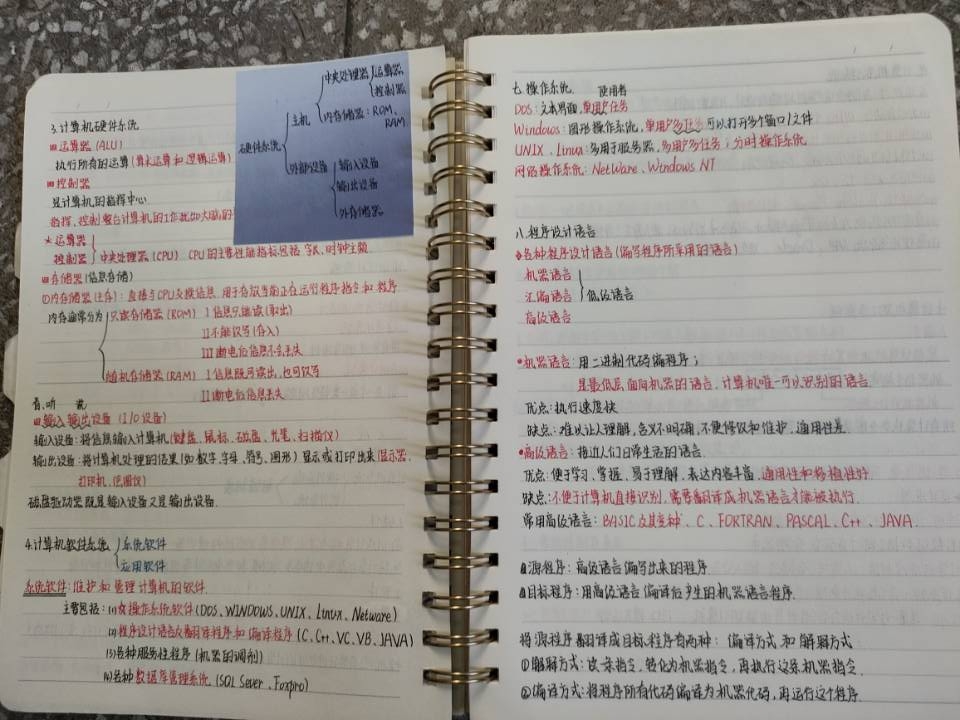 3.计算机硬件系统
运算器 (ALU)
执行所有的运算(算术运算和逻辑运算)
控制器
是计算机的指挥中心
指挥、控制整台计算机的工作就如大脑的
运算器
控制器 } 中央处理器 (CPU) CPU的主要性能指标包括字长、时钟主频
存储器(信息存储)
①内存储器(主存):直接与CPU交换信息.用于存放当前正在运行程序指令和程序
内存通常分为 { 只读存储器(ROM) I 信息只能读(取出)
II 不能改写(存入)
III 断电后信息不会丢失
随机存储器(RAM) I 信息既可读出,也可写
II 断电后信息丢失
看、听 说
输入输出设备 (I/O设备)
输入设备:将信息输入计算机(键盘、鼠标、磁盘、光笔、扫描仪)
输出设备:将计算机处理的结果(如数字、字母、符号、图形)显示或打印出来(显示器、
打印机、绘图仪)
磁盘驱动器既是输入设备又是输出设备.
4.计算机软件系统 { 系统软件
应用软件
系统软件:维护和管理计算机的软件
主要包括:(1)操作系统软件(DOS、WINDOWS、UNIX、Linux、Netware)
(2)程序设计语言及翻译程序和编译程序(C、C++、VC、VB、JAVA)
(3)各种服务性程序(机器的调剂)
(4)各种数据库管理系统(SQL Sever、Foxpro)
硬件系统 { 主机 { 中央处理器 { 运算器
控制器
内存储器:ROM、
RAM
外部设备 { 输入设备
输出设备
外存储器
七.操作系统 使用者
DOS:文本界面,单用户任务
Windows:图形操作系统,单用户多任务可以打开多个窗口/文件
UNIX、Linux:多用于服务器,多用户多任务;分时操作系统
网络操作系统:NetWare、Windows NT
八.程序设计语言
各种程序设计语言(编写程序所采用的语言)
机器语言
汇编语言 } 低级语言
高级语言
机器语言:用二进制代码编程序;
是最低层面向机器的语言,计算机唯一可以识别的语言.
优点:执行速度快
缺点:难以让人理解,含义不明确,不便修改和维护,通用性差.
高级语言:接近人们日常生活的语言.
优点:便于学习、掌握,易于理解,表达内容丰富,通用性和移植性好.
缺点:不便于计算机直接识别,需要翻译成机器语言才能被执行.
常用高级语言:BASIC及其变种、C、FORTRAN、PASCAL、C++、JAVA.
源程序:高级语言编写出来的程序.
目标程序:用高级语言编译后产生的机器语言程序.
将源程序翻译成目标程序有两种:编译方式和解释方式.
①解释方式:读一条指令,转化为机器指令,再执行这条机器指令.
②编译方式:将程序所有代码编译为机器代码,再运行这个程序.